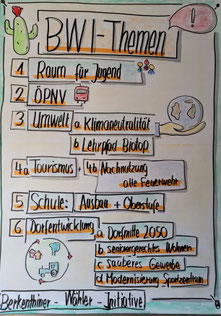 BWI-Themen
!
1 Raum für Jugend
2 ÖPNV
3 Umwelt a Klimaneutralität
b Lehrpfad Biotop
4a Tourismus + 4b Nachnutzung
alte Feuerwehr
5 Schule: Ausbau + Oberstufe
6 Dorfentwicklung a Dorfmitte 2050
b seniorengerechtes Wohnen
c sauberes Gewerbe
d Modernisierung Sportzentrum
Berkenthiner - Wähler - Initiative